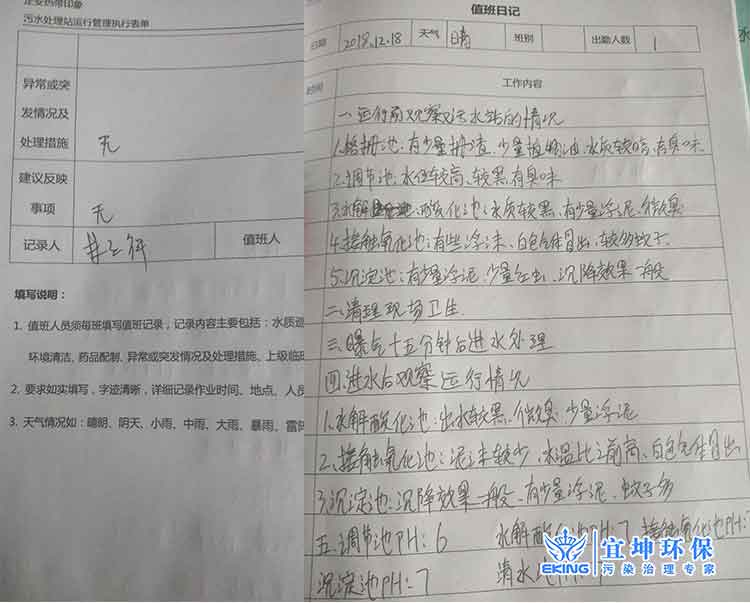 正安热带印象
污水处理站运行管理执行表单
异常或突
发情况及
处理措施
无
建议反映
事项
无
记录人
值班人
填写说明：
1. 值班人员须每班填写值班记录，记录内容主要包括：水质
环境清洁、药品配制、异常或突发情况及处理措施、上级临
2. 要求如实填写，字迹清晰，详细记录作业时间、地点、人员
3. 天气情况如：晴朗、阴天、小雨、中雨、大雨、暴雨、雷
值班日记
日期 2018.12.18 天气 晴 班别 出勤人数 1
水
时间 工作内容
一.运行前观察污水站的情况
1.格栅池：有少量栅渣、少量植物油、水质较暗、有臭味
2.调节池：水位较高、较黑、有臭味
3.水解酸化池：水质较黑、有少量浮泥、微臭
4.接触氧化池：有些浮沫、白色气体冒出、较多蚊子
5.沉淀池：有少量浮泥、少量红虫、沉降效果一般
二.清理现场卫生
三.曝气十五分钟后进水处理
四.进水后观察运行情况
1.水解酸化池：出水较黑、微臭、少量浮泥
2.接触氧化池：泥沫较少、水温比之前高、白色气体冒出
3.沉淀池：沉降效果一般、有少量浮泥、蚊子多
五.调节池PH：6 水解酸化池PH：7 接触氧化池PH：
沉淀池PH：7 清水池PH：
EKING 宜坤环保
污染治理专家